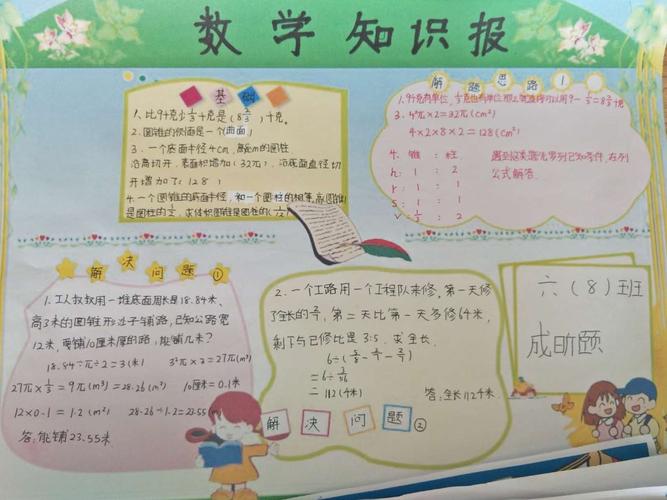 数学 知识报
基础
1. 比9千克少1/3千克是(8 2/3)千克。
2. 圆锥的侧面是一个(曲面)
3. 一个底面半径4cm,高8cm的圆柱
沿高切开,表面积增加(32π),沿底面直径切
开增加了(128)
4. 一个圆锥的底面半径,和一个圆柱的相等,高
是圆柱的
解题思路1
4²π×2=32π(cm²)
4×2×8×2=128(cm²)
4. 锥:柱
h: 1 : 2
r: 1 : 1
S: 1 : 1
V: 1/3 : 2
遇到这类题先罗列已知条件,在列
公式解答
解决问题①
1. 工人叔叔用一堆底面周长是18.84米,
高3米的圆锥形沙子铺路,已知公路宽
12米,要铺10厘米厚的路,能铺几米?
18.84÷π÷2=3(米) 3²π×3=27π(m³)
27π×1/3=9π(m³)=28.26(m³) 10厘米=0.1米
12×0.1=1.2(m²) 28.26÷1.2=23.55(m)
答:能铺23.55米
2. 一个工路用一个工程队来修,第一天修
了全长的2/7,第二天比第一天多修64米,
剩下与已修比是3:5,求全长
=112(米)
答:全长112米
解决问题②
六(8)班
成昕颐